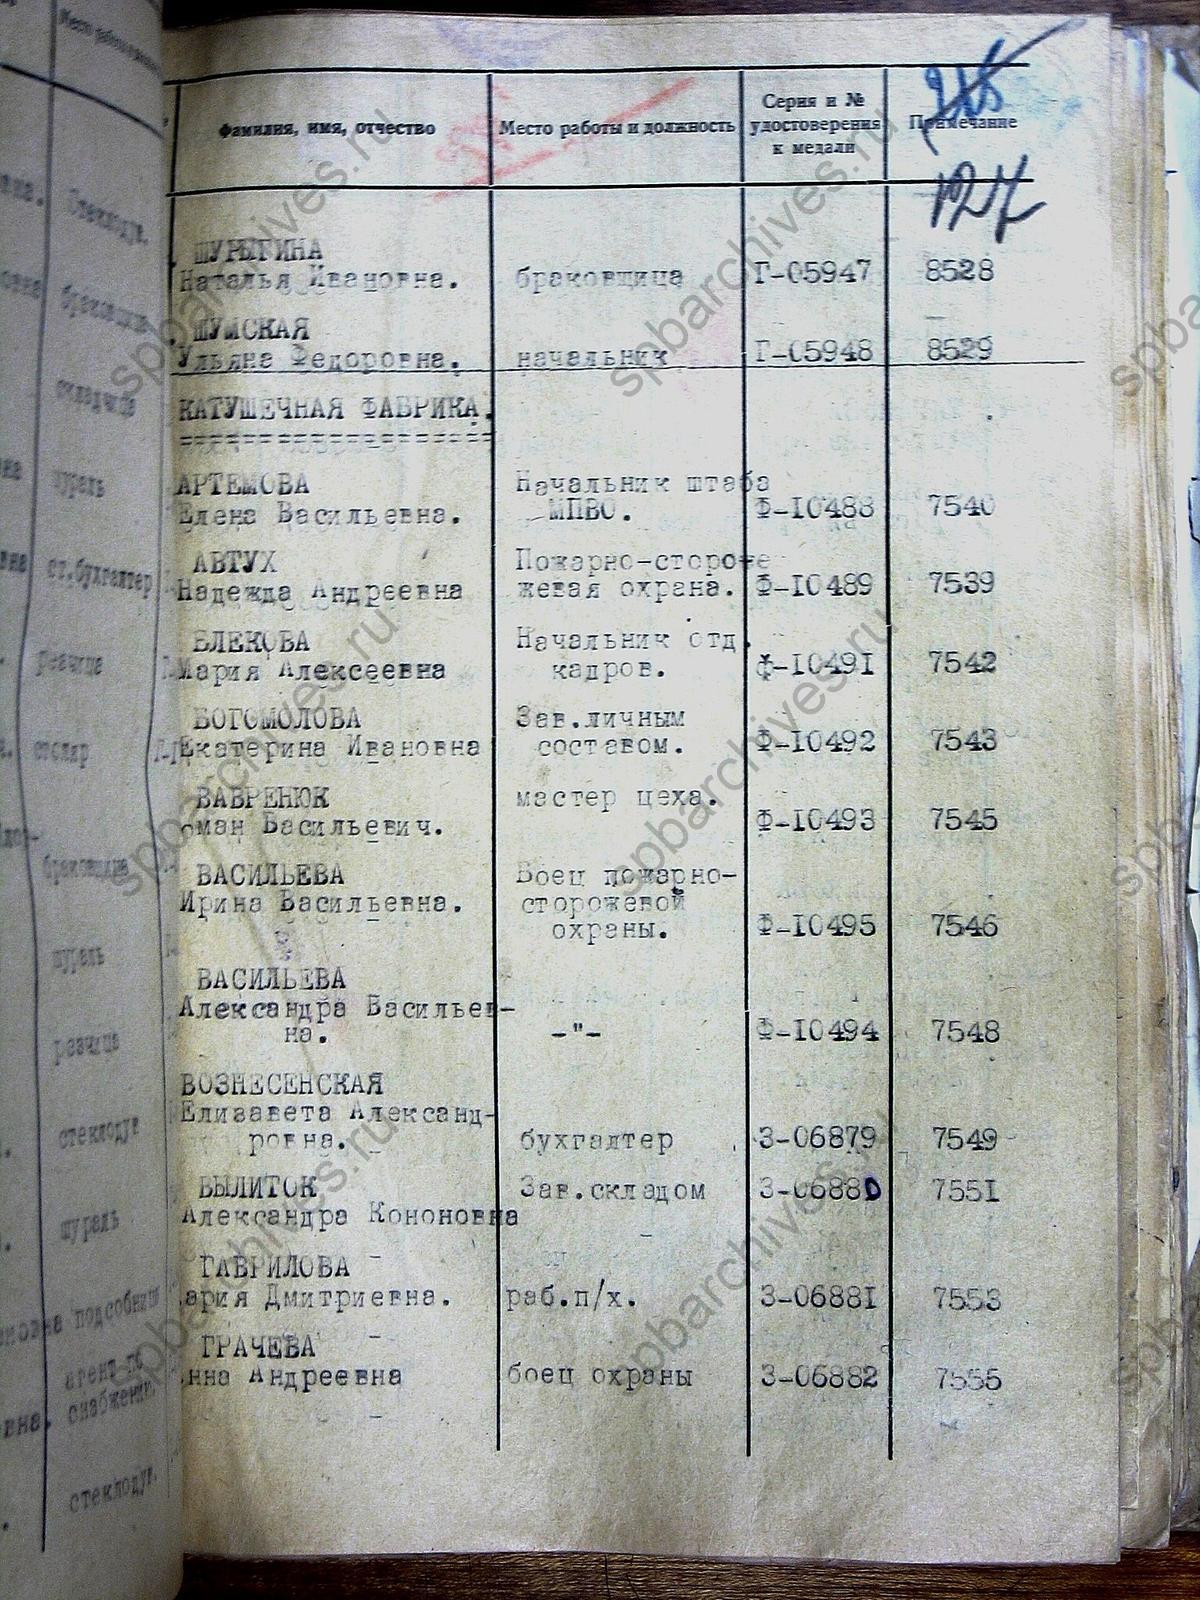 Фамилия, имя, отчество
Место работы и должность
Серия и №
удостоверения
к медали
Примечание
127
ШУРЫГИНА
Наталья Ивановна. браковщица Г-05947 8528
ШУМСКАЯ
Ульяна Федоровна. начальник Г-05948 8529
КАТУШЕЧНАЯ ФАБРИКА.
====================
АРТЕМОВА Начальник штаба
Елена Васильевна. МПВО. Ф-10488 7540
АВТУХ Пожарно-стороже
Надежда Андреевна жевая охрана. Ф-10489 7539
БЛЕКОВА Начальник отд.
Мария Алексеевна кадров. ф-10491 7542
БОГОМОЛОВА Зав.личным
Екатерина Ивановна составом. Ф-10492 7543
ВАВРЕНЮК мастер цеха.
оман Васильевич. Ф-10493 7545
ВАСИЛЬЕВА Боец пожарно-
Ирина Васильевна. сторожевой
охраны. Ф-10495 7546
ВАСИЛЬЕВА
Александра Васильев-
на. -"- Ф-10494 7548
ВОЗНЕСЕНСКАЯ
Елизавета Александ-
ровна. бухгалтер З-06879 7549
ВЫЛИТОК Зав.складом З-06880 7551
Александра Кононовна
ГАВРИЛОВА
ария Дмитриевна. раб.п/х. З-06881 7553
ГРАЧЕВА
нна Андреевна боец охраны З-06882 7555
Стеклодув.
браковщик
складчица
пураль
ст.бухгалтер
резчица
столяр
браковщица
пураль
резчица
стеклодув
пураль
подсобница
агент по
снабжению.
стеклодув.
spbarchives.ru
spbarchives.ru
spbarchives.ru
spbarchives.ru
spbarchives.ru
spbarchives.ru